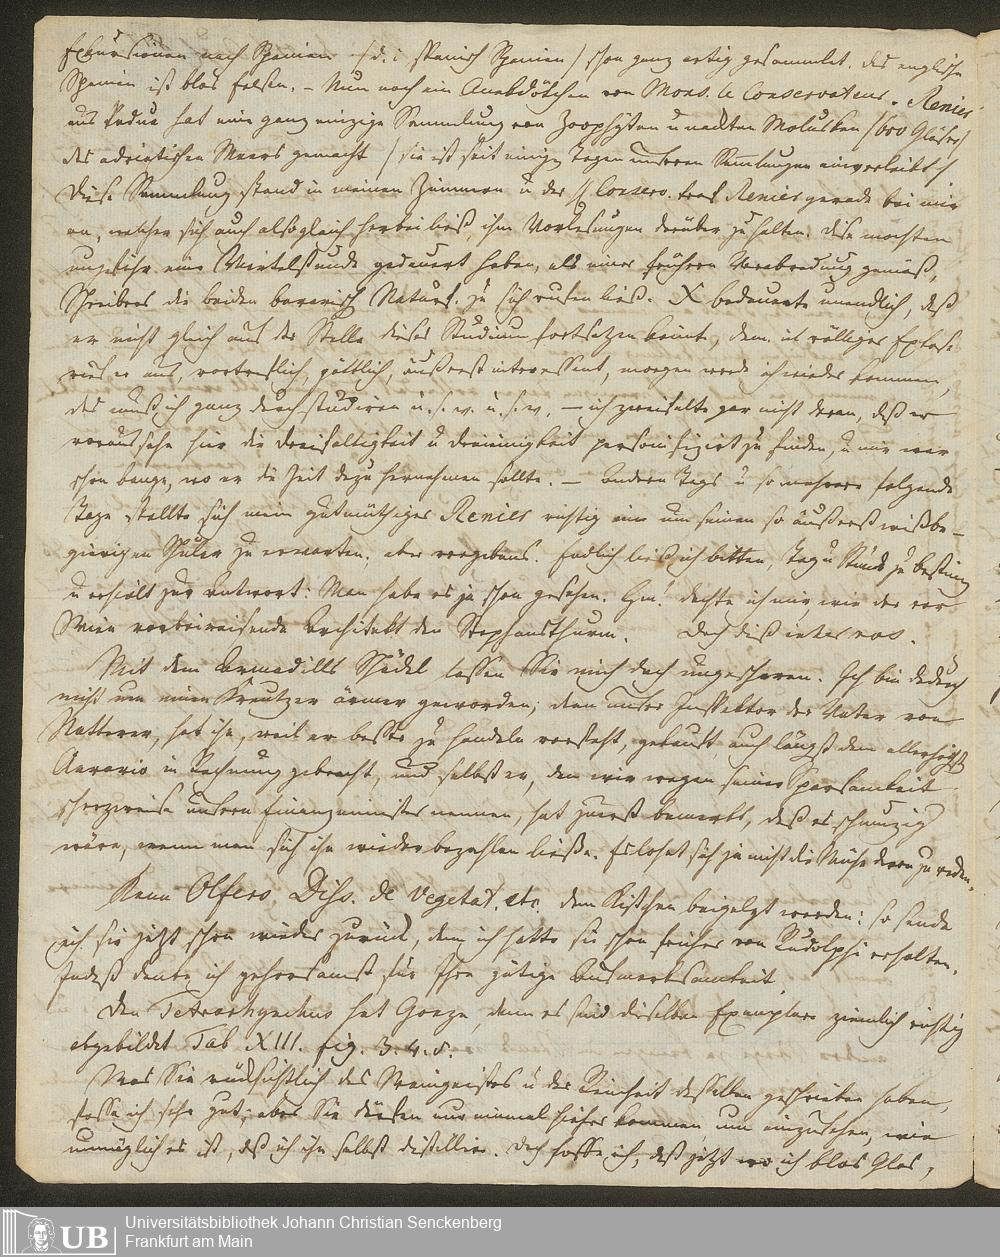 Excursionen nach Spanien /d. i. spanisch Spanien/ schon ganz artig gesammelt. Das englische
Spanien ist blos Felsen. – Nun noch ein Anekdötchen von Mons. le Conservateur. Renier
aus Padua hat eine ganz einzige Sammlung von Zoophyten u nackten Molusken /600 Gläser/
des adriatischen Meers gemacht /sie ist seit einigen Tagen unseren Sammlungen einverleibt/
Diese Sammlung stand in meinen Zimmern u der Conserv. traf Renier gerade bei mir
an, welcher sich auch alsogleich herbei ließ, ihm Vorlesungen darüber zu halten. Diese mochten
ungefähr eine Viertelstunde gedauert haben, als einer frühern Verabredung gemäß,
Schreibers die beiden bayerisch Naturf. zu sich rufen ließ. X bedauerte unendlich, daß
er nicht gleich auf der Stelle dieses Studium fortsetzen könnte, denn in völliger Extase
rief er aus, vortreflich, göttlich, äußerst interessant, morgen werde ich wieder kommen,
das muß ich ganz durchstudiren u. s. w. u. s. w. – ich zweifelte gar nicht daran, daß er
voraus sehe hier die Dreifaltigkeit u Dreieinigkeit personifizirt zu finden, u mir war
schon bange, wo er die Zeit dazu hernehmen sollte. – Andern Tags u so mehrere folgende
Tage stellte sich mein gutmüthiger Renier richtig ein um seinen so äußerst wißbe-
gierigen Schüler zu erwarten; aber vergebens. Endlich ließ ich bitten, Tag u Stunde zu bestimmen
u erhielt zur Antwort: Man habe es ja schon gesehen. Hm! dachte ich mir, wie der vor
Wien vorbeireisende Architekt den Stephansthurm. Doch diß inter nos.
Mit dem Armadills Schädel lassen Sie mich doch ungeschoren. Ich bin dadurch
nicht um einen Kreutzer ärmer geworden; denn unser Inspektor der Vater von
Natterer, hat ihn, weil er besser zu handeln versteht, gekauft, auch längst dem allerhöchst
Aerario in Rechnung gebracht, und selbst er, den wir wegen seiner Sparsamkeit
scherzweise unsern Finanzminister nennen, hat zuerst bemerkt, daß es schmutzig
wäre, wenn man sich ihn wieder bezahlen ließe. Es lohnt sich ja nicht die Mühe davon zu reden.
Kann Olfers Diss. de vegetat. etc. dem Kistchen beigelegt werden: so sende
ich sie jetzt schon wieder zurück, denn ich hatte sie schon früher von Rudolphi erhalten.
Indeß danke ich gehorsamst für Ihre gütige Aufmerksamkeit.
Den Tetrarhynchus hat Goeze, denn es sind dieselben Exemplare ziemlich richtig
abgebildet Tab XIII. fig. 3. 4. 5.
Was Sie rücksichtlich des Weingeistes u der Reinheit desselben geschrieben haben,
fasse ich sehr gut; aber Sie dürfen nur einmal hieher kommen um einzusehen, wie
unmöglich es ist, daß ich ihn selbst distillire. Doch hoffe ich, daß jetzt wo ich blos Glas,
Universitätsbibliothek Johann Christian Senckenberg
Frankfurt am Main
UB